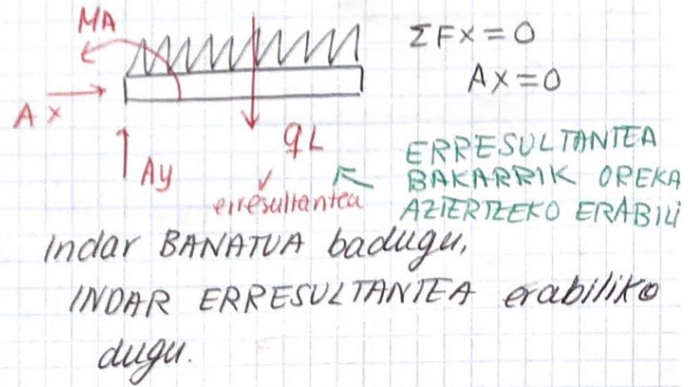 MA
ΣFX=0
AX=0
AX
Ay
qL
erresultantea
ERRESULTANTEA
BAKARRIK OREKA
AZTERTZEKO ERABILI
Indar BANATUA badugu,
INDAR ERRESULTANTEA erabiliko
dugu.